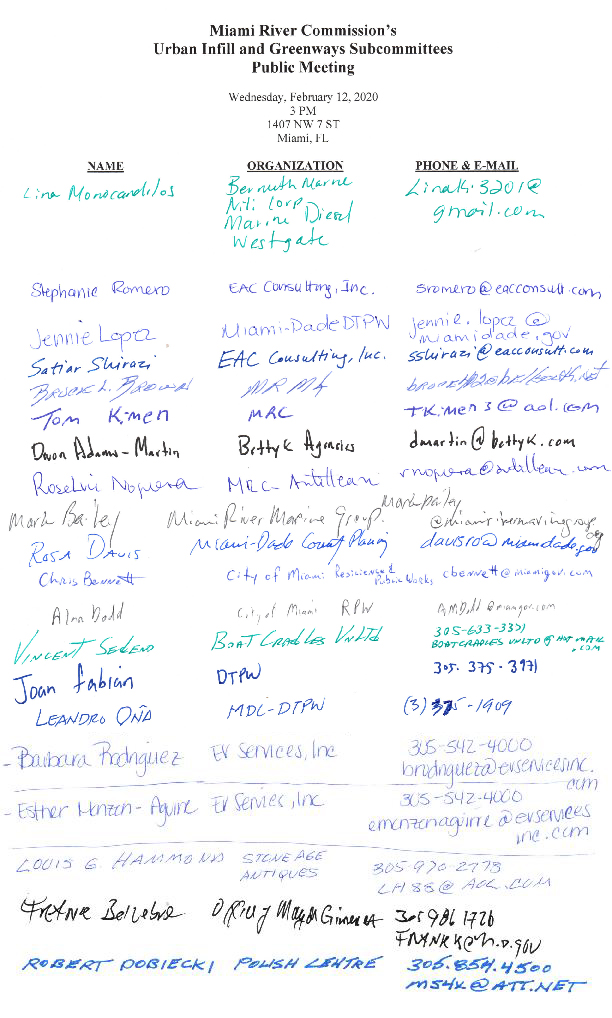 Miami River Commission's
Urban Infill and Greenways Subcommittees
Public Meeting
Wednesday, February 12, 2020
3 PM
1407 NW 7 ST
Miami, FL
NAME ORGANIZATION PHONE & E-MAIL
Lina Bernuth Marine Linaki3201@
gmail.com
Marine Diesel
Westgate
Stephanie Romero EAC Consulting, Inc. sromero@eacconsult.com
Jennie Lopez Miami-Dade DTPW jennie.lopez@
miamidade.gov
Satiar Shirazi EAC Consulting, Inc. sshirazi@eacconsult.com
MRMG
Tom Kimen MRC TKimen3@aol.com
Devon Adams-Martin Betty K Agencies dmartin@bettyk.com
Roselvic Noguera MRC-Antillean rnoguera@antillean.com
Mark Bailey Miami River Marine Group. markbailey
@miamirivermarinegroup.org
Rosa Davis Miami-Dade County davisro@miamidade.gov
Chris Bennett City of Miami Resilience & Public Works cbennett@miamigov.com
Alan Dodd City of Miami RPW
Vincent BOAT CRADLES UNLTD 305-633-3331
BOATCRADLES UNLTD@HOTMAIL
.COM
Joan Fabian DTPW 305. 375-3971
LEANDRO OÑA MDC-DTPW (3) 375-1909
- Barbara Rodriguez EV Services, Inc 305-542-4000
brodriguez@evservicesinc.
com
- Esther Monzon-Aguirre EV Services, Inc 305-542-4000
emonzonaguirre@evservices
inc.com
LOUIS G. HAMMOND STONE AGE 305-970-2773
ANTIQUES LH88@AOL.COM
Office of Mayor Gimenez 305 986 1726
ROBERT DOBIECKI POLISH CENTRE 305.854.4500
MS4X@ATT.NET